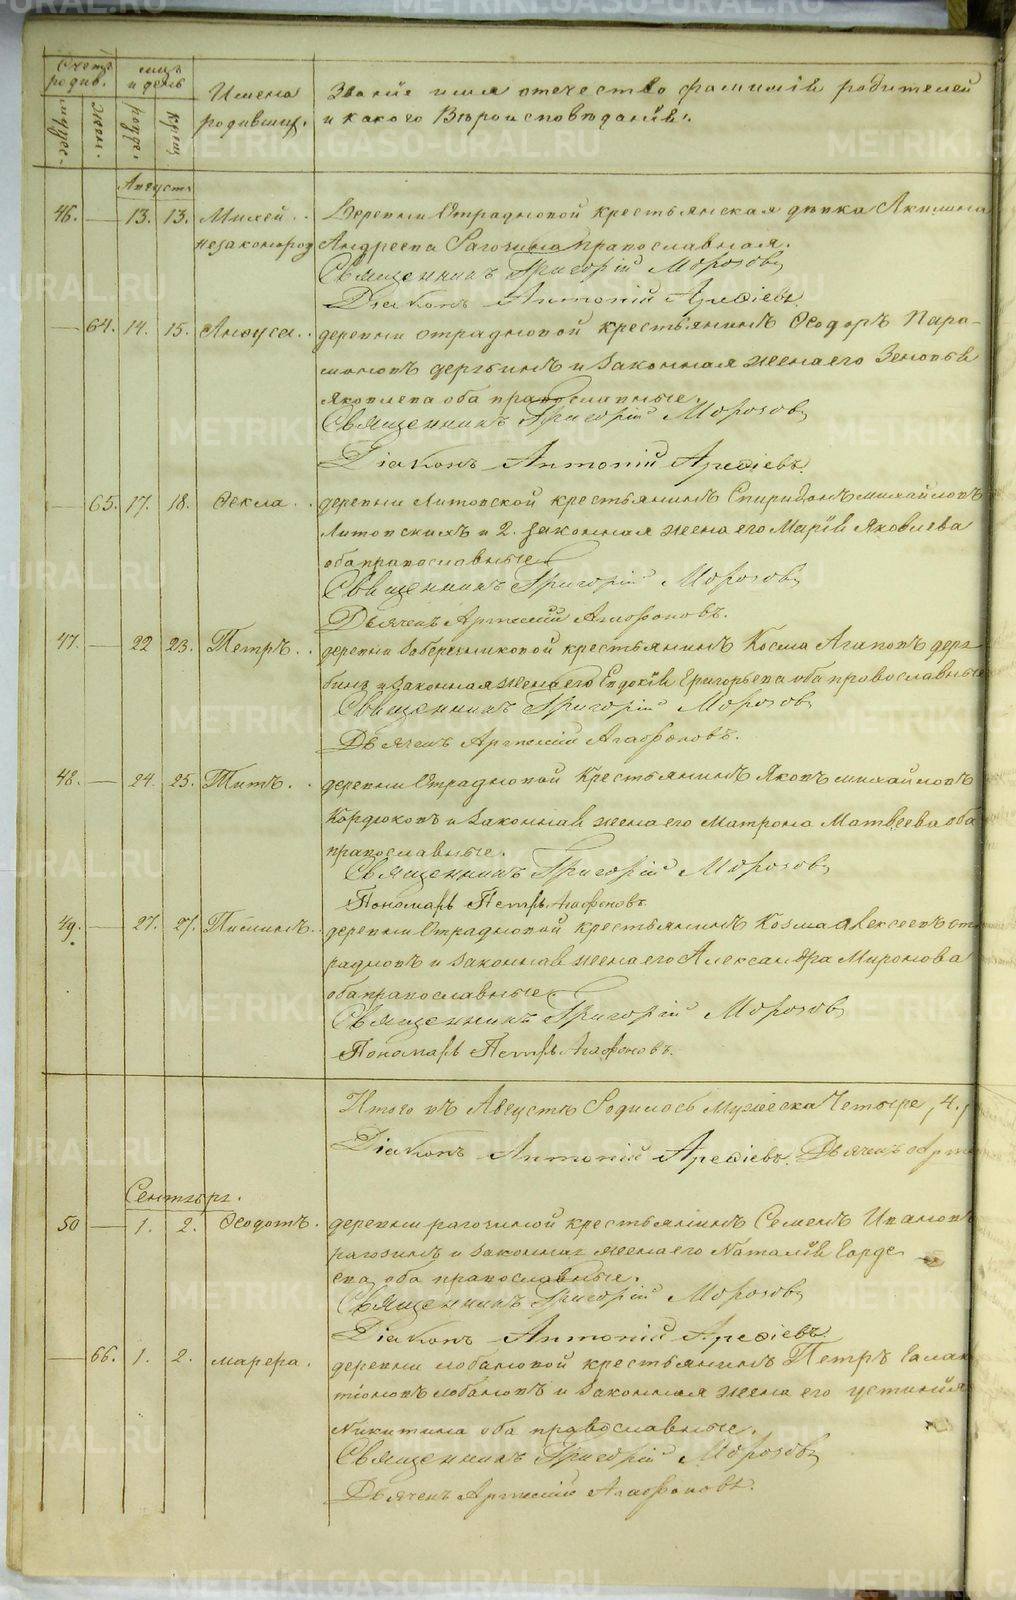 Счетъ родив.
мцъ и день
Имена родивших.
Званіе имя отечество фамиліи родителей
и какого Вѣроисповѣданія.
мужес.
Жен.
Рожде.
Крещ.
Августъ
46. — 13. 13. Михей.. Деревни Отрадновой крестьянская дѣвка Акилина
незаконород Андреева Рагозина православная.
Священникъ Григорій Морозовъ
Діаконъ Антоній Арефіевъ
— 64. 14. 15. Анфуса.. деревни отрадновой крестьянинъ Ѳеодоръ Пара-
моновъ дергбинъ и законная жена его Зеновья
Яковлева оба православные.
Священникъ Григорій Морозовъ
Діаконъ Антоній Арефіевъ.
— 65. 17. 18. Ѳекла.. деревни Литовской крестьянинъ Спиридонъ михайловъ
Литовскихъ и 2. законная жена его Марія Яковлева
оба православные
Священникъ Григорій Морозовъ
Дьячекъ Артемій Агафоновъ.
47. — 22 23. Петръ.. деревни крестьянинъ Косма Агаповъ
и законная жена его Евдокія Григорьева оба православные
Священникъ Григорій Морозовъ
Дьячекъ Артемій Агафоновъ.
48. — 24. 25. Титъ.. деревни Отрадновой Крестьянинъ Яковъ михайловъ
Кордюковъ и законная жена его Матрона Матвѣева оба
православные.
Священникъ Григорій Морозовъ
Пономарь Петръ Агафоновъ
49. — 27. 27. Пименъ.. деревни Отрадновой крестьянинъ Козма алексеевъ от
радновъ и законная жена его Александра Миронова
оба православные.
Священникъ Григорій Морозовъ
Пономарь Петръ Агафоновъ.
Итого въ Августѣ Родилось Мужеска Четыре, 4.,
Діаконъ Антоній Арефіевъ. Дьячекъ
Сентябрь.
50 — 1. 2. Ѳеодотъ. деревни рагозиной крестьянинъ Семенъ Ивановъ
рагозинъ и законная жена его Наталія Горде
ева оба православные.
Священникъ Григорій Морозовъ
Діаконъ Антоній Арефіевъ
— 66. 1. 2. марфа. деревни лобановой крестьянинъ Петръ Галак
тіоновъ лобановъ и законная жена его устинія
Никитина оба православные.
Священникъ Григорій Морозовъ
Дьячекъ Артемій Агафоновъ.
METRIKI.GASO-URAL.RU